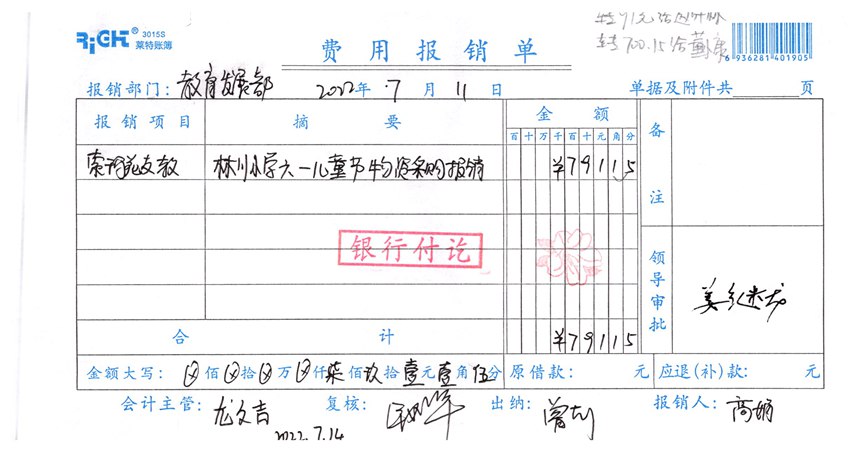 转91元给
转700.15给
RiGHT® 3015S
莱特账簿
6 936281 401905
费用报销单
报销部门: 教育发展部 2022年 7月 11日 单据及附件共 页
报销项目 摘要 金额 备注
百十万千百十元角分
林川小学六一儿童节物资采购报销 ¥79115
银行付讫
领导审批
合计 ¥79115
金额大写: ⊗佰⊗拾⊗万⊗仟柒佰玖拾壹元壹角伍分 原借款: 元 应退(补)款: 元
会计主管: 龙文吉 复核: 出纳: 报销人: 高娟
2022.7.14